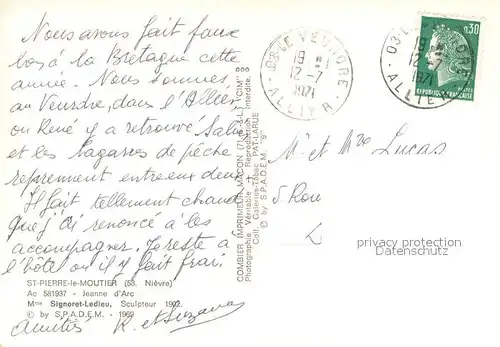 Nous avons fait faux
bon à la Bretagne cette
année. Nous sommes
au Veurdre, dans l'Allier
où René y a retrouvé
et les bagarres de pêche
reprennent entre eux deux.
Il fait tellement chaud
que j'ai renoncé à les
accompagner. Je reste à
l'hôtel où il y fait frais
ST-PIERRE-le-MOUTIER (58. Nièvre)
Ac 581937 - Jeanne d'Arc
Mme Signoret-Ledieu, Sculpteur 1902.
© by S.P.A.D.E.M. - 1969
amitiés R. et Suzanne
COMBIER IMPRIMEUR MACON (S.-&-L.) "CIM"
Photographie Véritable - Reproduction Interdite
Coll. Galeries-Tabac PAT-LARUE
© by S.P.A.D.E.M.
03-LE VEURDRE
19
12-7
1971
ALLIER
03-LE VEURDRE
19
12-7
1971
ALLIER
0,30
POSTES
REPUBLIQUE FRANÇAISE
M et Mme Lucas
5 Rou
L
privacy protection
Datenschutz